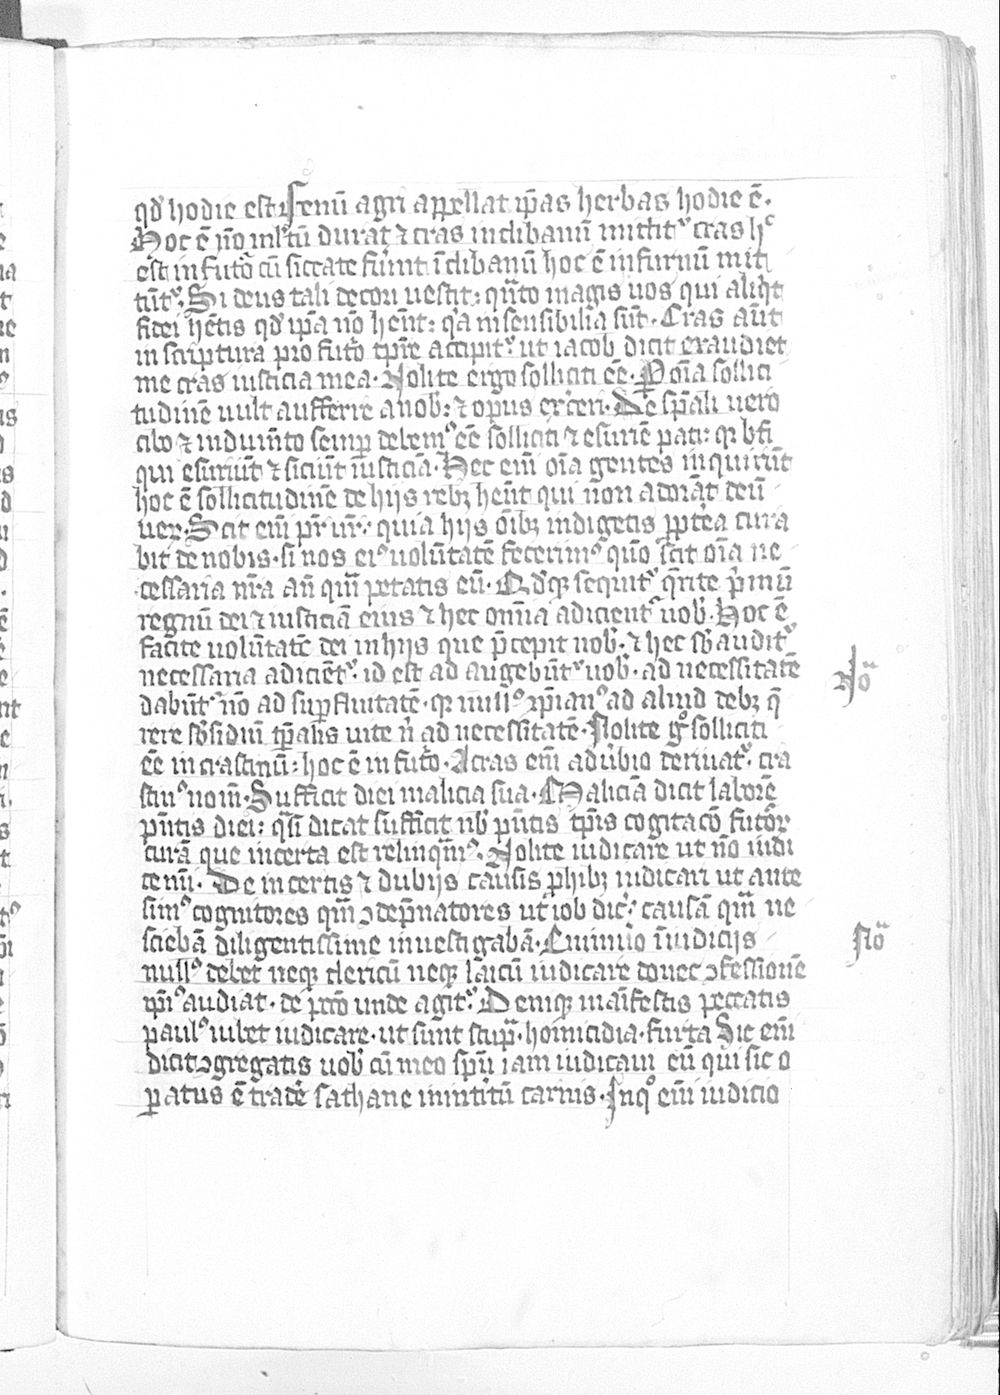 qd hodie est fenū agri appellat ip̄as herbas hodie ē·
Hoc ē nō ml̄tū durat ⁊ cras inclibanū mittitʳ cras hᶜ
est in futo͛ cū siccate fu͛int ī clibanū hoc ē in furnū mit
tūtʳ· Si deus tali decori uestit: q̄nto magis uos qui aliq͛t
fidei hētis qd ip̄a nō hen̄t: q͛a insensibilia sūt· Cras aūt
in scriptura pro futo͛ tp̄re accipitʳ ut iacob dicit exaudiet
me cras iusticia mea· Nolite ergo solliciti ēē· P oīa sollici
tudinē uult aufferre a nob͛: ⁊ opus ex͛ceri· De sp̄ali uero
cibo ⁊ induīnto semꝑ debemꝰ ēē solliciti ⁊ esuriē pati: qꝛ bt̄i
qui esuriūt ⁊ siciūt iusticiā· Hec eīn oīa gentes inquirūt
hoc ē sollicitudinē de hijs rebꝫ hen̄t qui non adorāt deū
uer· Scit eīn pr̄ ur̄: quia hijs oībꝫ indigetis ꝓpt͛ea cura
bit de nobis· si nos eiꝰ uolūtatē fecerimꝰ quō scit oīa ne
cessaria nr̄a an̄ qm̄ petatis eū· Qd͛qꝫ sequitʳ q̄rite p͛mū
regnū dei ⁊ iusticiā eius ⁊ hec omīa adicientʳ uob͛· Hoc ē
facite uolūtatē dei in hijs que p̄cepit nob͛· ⁊ hec sb͛auditʳ
necessaria adiciētʳ· id est ad augebūtʳ uob͛· ad necessitatē
dabūtʳ nō ad suꝑfluitatē· qꝛ nullꝰ xp̄ianꝰ ad aliud debꝫ q̄
rere sb͛sidiū tp̄alis uite n̄ ad necessitatē· Nolite gº solliciti
ēē in crastinū: hoc ē in futo͛· A cras eīn adu͛bio deriuatʳ cra
stinꝰ nom̄· Sufficit diei malicia sua· Maliciā dicit laborē
pn̄tis diei: q͛si dicat sufficit nb͛ pn̄tis tp̄is cogitacō futo͛ꝝ
curā que incerta est relinqm̄ꝰ· Nolite iudicare ut nō iudi
cemī· De incertis ⁊ dubijs causis ꝓhibꝫ iudicari ut ante
simꝰ cognitores qm̄ ꝯdēp̄natores ut iob dic͛: causā qm̄ ne
sciebā diligentissime inuestigabā· Cuīmuo īiudicijs
nullꝰ debet neqꝫ clericū neqꝫ laicū iudicare donec ꝯfessionē
ip̄iꝰ audiat· de pctō unde agitʳ· Deniqꝫ maīfestis peccatis
paulꝰ iubet iudicare· ut sunt stupᵃ· homicidia· furta Sic eīn
dicit ꝯgregatis uob͛ cū meo spū iam iudicaui eū qui sic o
ꝑatus ē trade͛ sathane in int͛itū carnis· In qº eīn iudicio
Noᵃ
Noᵃ